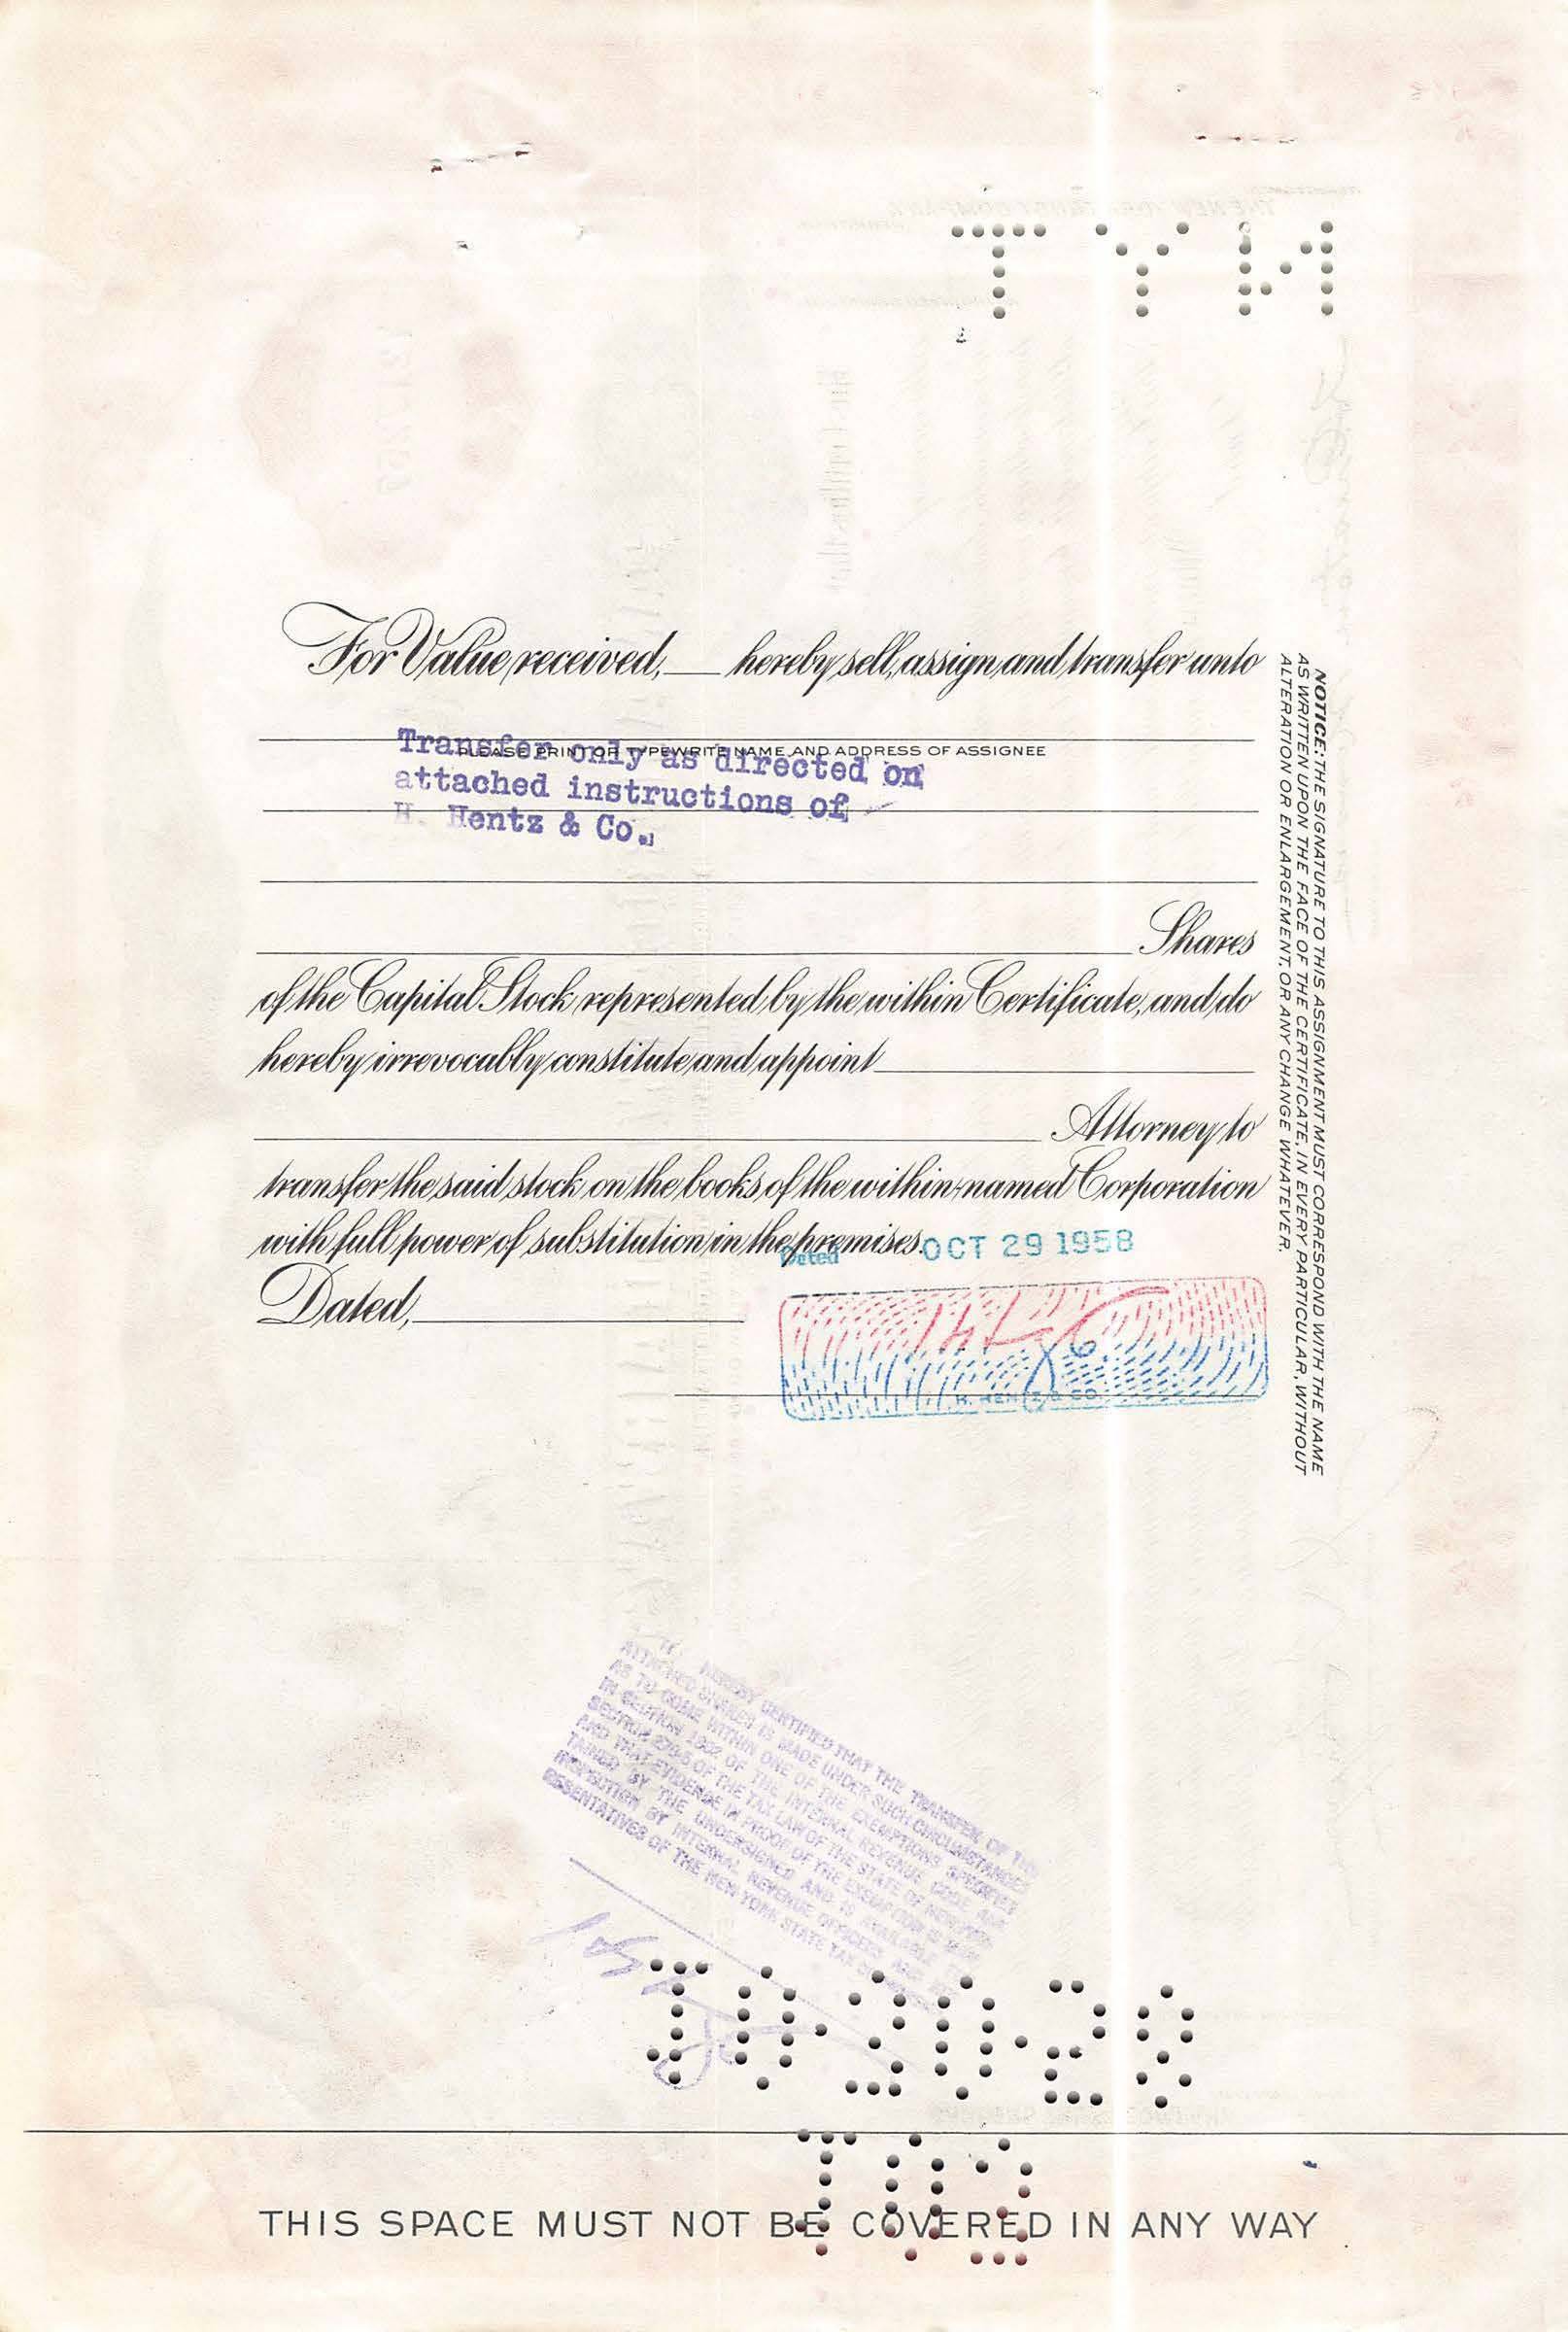 For Value received, hereby sell, assign and transfer unto
PLEASE PRINT OR TYPEWRITE NAME AND ADDRESS OF ASSIGNEE
Transfer only as directed on
attached instructions of
H. Hentz & Co.
Shares
of the Capital Stock represented by the within Certificate, and do
hereby irrevocably constitute and appoint
Attorney to
transfer the said stock on the books of the within named Corporation
with full power of substitution in the premises.
Dated OCT 29 1958
Dated,
H. HENTZ & CO.
NOTICE: THE SIGNATURE TO THIS ASSIGNMENT MUST CORRESPOND WITH THE NAME
AS WRITTEN UPON THE FACE OF THE CERTIFICATE, IN EVERY PARTICULAR, WITHOUT
ALTERATION OR ENLARGEMENT, OR ANY CHANGE WHATEVER.
HEREBY CERTIFIED THAT THE TRANSFER OF THE
ATTACHED SHARES IS MADE UNDER SUCH CIRCUMSTANCES
AS TO COME WITHIN ONE OF THE EXEMPTIONS SPECIFIED
IN SECTION OF THE INTERNAL REVENUE CODE AND
SECTION 270-5 OF THE TAX LAW OF THE STATE OF NEW YORK
AND THAT EVIDENCE IN PROOF OF THE EXEMPTION IS
TAINED BY THE UNDERSIGNED AND IS AVAILABLE
INSPECTION BY INTERNAL REVENUE OFFICERS AND
RESENTATIVES OF THE NEW YORK STATE TAX
THIS SPACE MUST NOT BE COVERED IN ANY WAY